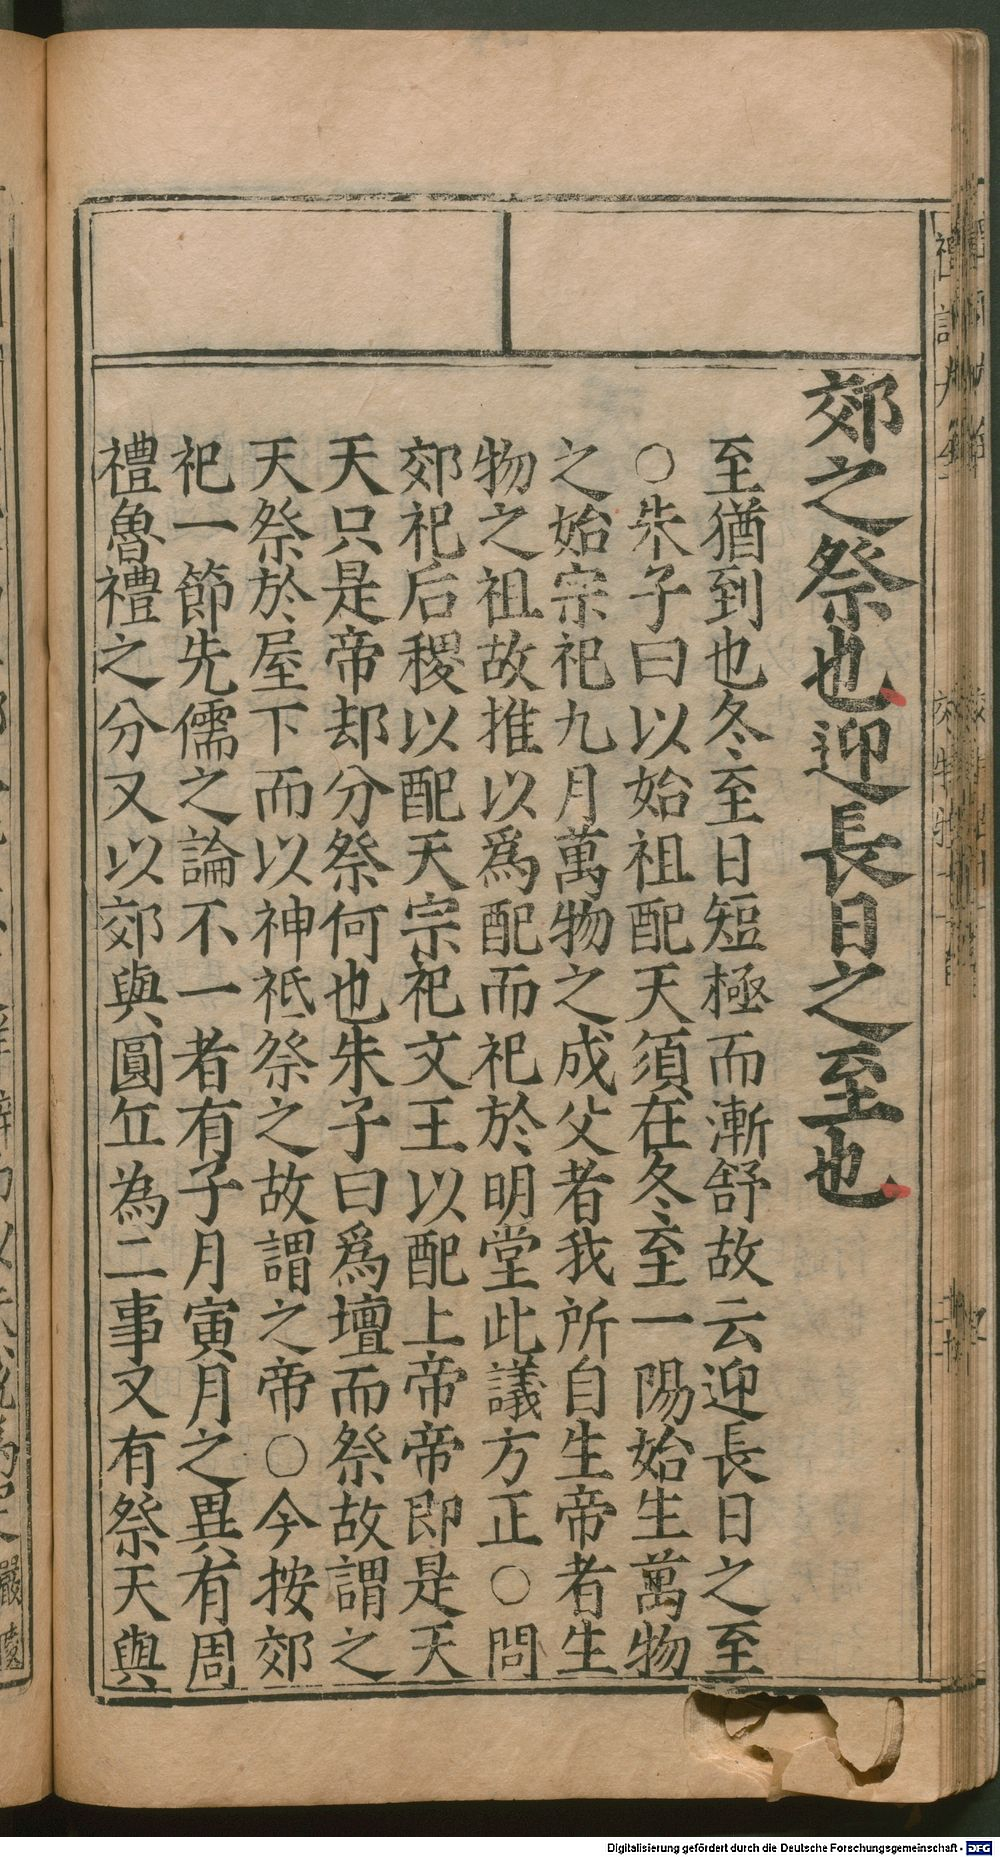 郊之祭也迎長日之至也
至猶到也冬至日短極而漸舒故云迎長日之至
○朱子曰以始祖配天須在冬至一陽始生萬物
之始宗祀九月萬物之成父者我所自生帝者生
物之祖故推以爲配而祀於明堂此議方正○問
郊祀后稷以配天宗祀文王以配上帝帝即是天
天只是帝却分祭何也朱子曰爲壇而祭故謂之
天祭於屋下而以神祗祭之故謂之帝○今按郊
祀一節先儒之論不一者有子月寅月之異有周
禮魯禮之分又以郊與圓丘為二事又有祭天與
Digitalisierung gefördert durch die Deutsche Forschungsgemeinschaft - DFG